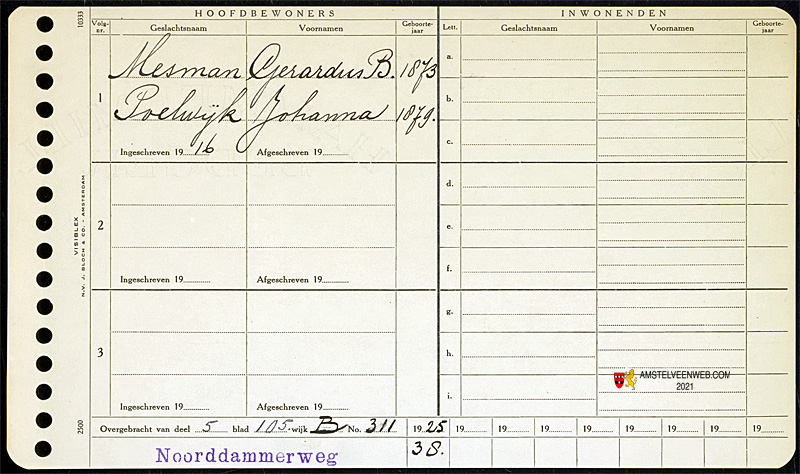 HOOFDBEWONERS
INWONENDEN
Volg-nr. Geslachtsnaam Voornamen Geboorte-jaar
Lett. Geslachtsnaam Voornamen Geboorte-jaar
1 Mesman Gerardus B. 1873
Poelwijk Johanna 1879.
Ingeschreven 19 16 Afgeschreven 19
2
Ingeschreven 19 Afgeschreven 19
3
Ingeschreven 19 Afgeschreven 19
a.
b.
c.
d.
e.
f.
g.
h.
i.
Overgebracht van deel 5 blad 105. wijk B No. 311 19 25 19 19 19 19 19 19 19
Noorddammerweg 38.
10333
VISIBLEX
N.V. J. BLOCH & CO. - AMSTERDAM
2500
AMSTELVEENWEB.COM
2021